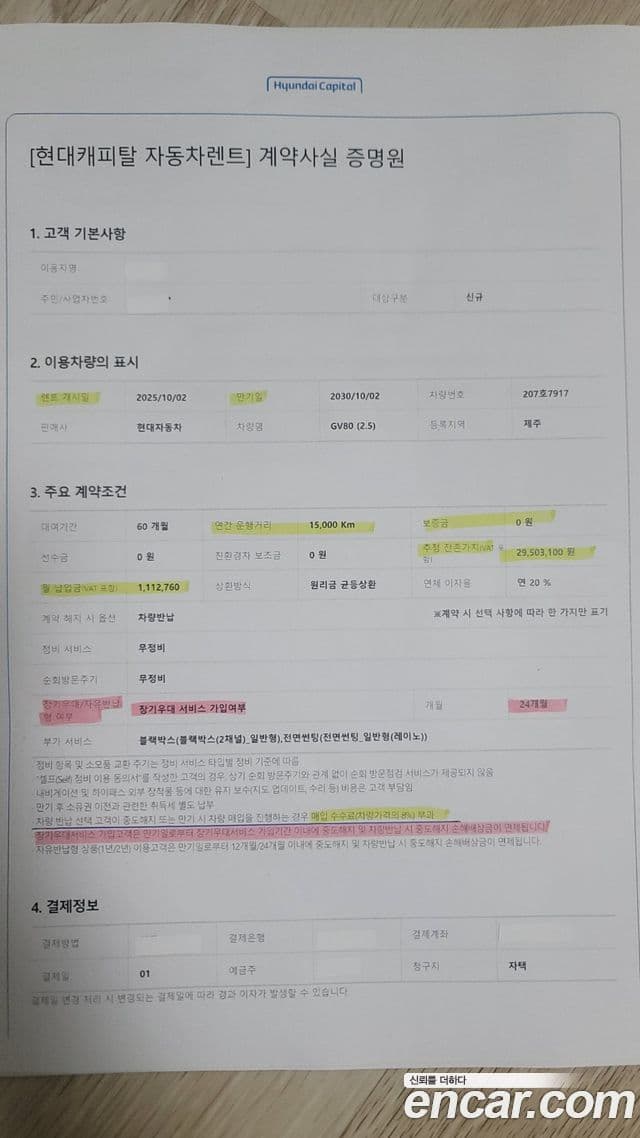 Hyundai Capital
[현대캐피탈 자동차렌트] 계약사실 증명원
1. 고객 기본사항
이용자명
주민/사업자번호 대상구분 신규
2. 이용차량의 표시
렌트 개시일 2025/10/02 만기일 2030/10/02 차량번호 207호7917
판매사 현대자동차 차량명 GV80 (2.5) 등록지역 제주
3. 주요 계약조건
대여기간 60 개월 연간 운행거리 15,000 Km 보증금 0 원
선수금 0 원 친환경차 보조금 0 원 추정 잔존가치(VAT 포함) 29,503,100 원
월 납입금(VAT 포함) 1,112,760 상환방식 원리금 균등상환 연체 이자율 연 20 %
계약 해지 시 옵션 차량반납 ※계약 시 선택 사항에 따라 한 가지만 표기
정비 서비스 무정비
순회방문주기 무정비
장기우대/자유반납형 여부 장기우대 서비스 가입여부 개월 24개월
부가 서비스 블랙박스(블랙박스(2채널)_일반형),전면썬팅(전면썬팅_일반형(레이노))
정비 항목 및 소모품 교환 주기는 정비 서비스 타입별 정비 기준에 따름
"셀프(Self) 정비 이용 동의서"를 작성한 고객의 경우, 상기 순회 방문주기와 관계 없이 순회 방문점검 서비스가 제공되지 않음
내비게이션 및 하이패스 외부 장착물 등에 대한 유지 보수(지도 업데이트, 수리 등) 비용은 고객 부담임
만기 후 소유권 이전과 관련한 취득세 별도 납부
차량 반납 선택 고객이 중도해지 또는 만기 시 차량 매입을 진행하는 경우 매입 수수료(차량가격의 8%) 부과
장기우대서비스 가입고객은 만기일로부터 장기우대서비스 가입기간 이내에 중도해지 및 차량반납 시 중도해지 손해배상금이 면제됩니다.
자유반납형 상품(1년/2년) 이용고객은 만기일로부터 12개월/24개월 이내에 중도해지 및 차량반납 시 중도해지 손해배상금이 면제됩니다.
4. 결제정보
결제방법 결제은행 결제계좌
결제일 01 예금주 청구지 자택
결제일 변경 처리 시 변경되는 결제일에 따라 경과 이자가 발생할 수 있습니다.
신뢰를 더하다
encar.com